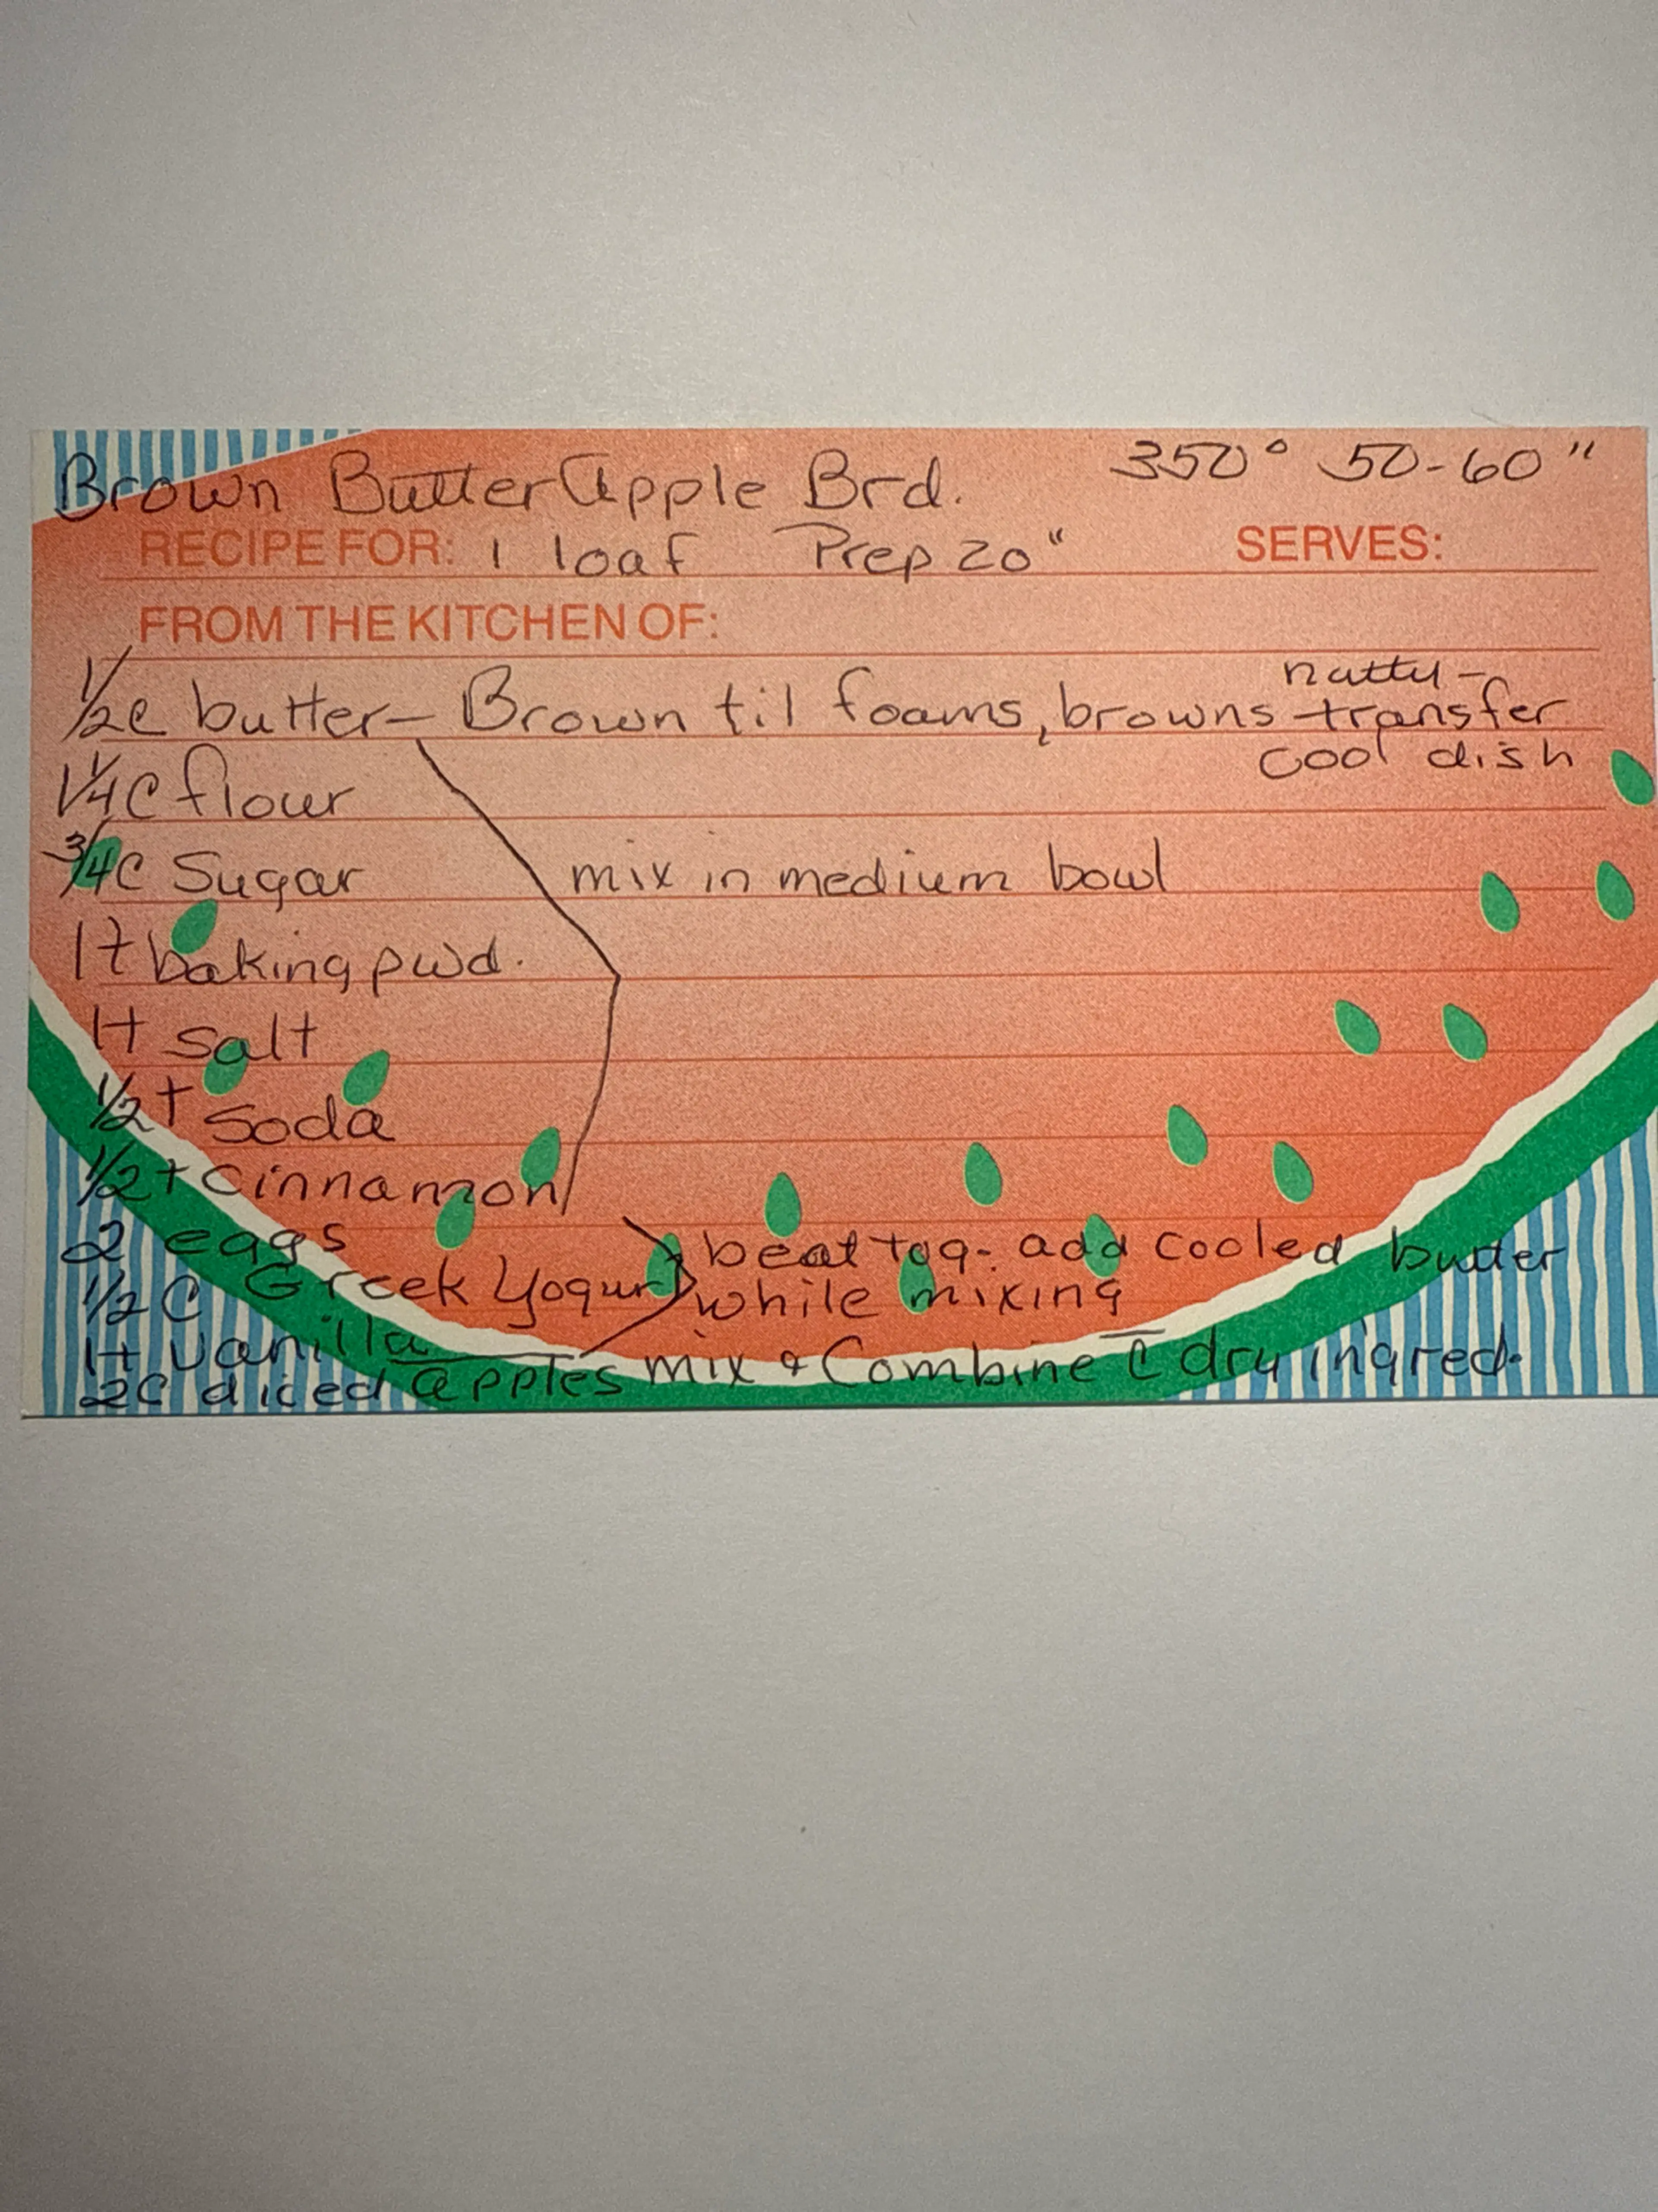 Brown Butter Apple Brd. 350° 50-60"
RECIPE FOR: 1 loaf Prep 20" SERVES:
FROM THE KITCHEN OF:
nutty-
1/2 c butter - Brown til foams, browns transfer
cool dish
1 1/4 C flour
3/4 C Sugar mix in medium bowl
1 t baking pwd.
1 t salt
1/2 t soda
1/2 t cinnamon
2 eggs beat tog. add cooled butter
1/2 C Greek Yogurt while mixing
1 t vanilla mix & Combine c̄ dry ingred.
2C diced apples